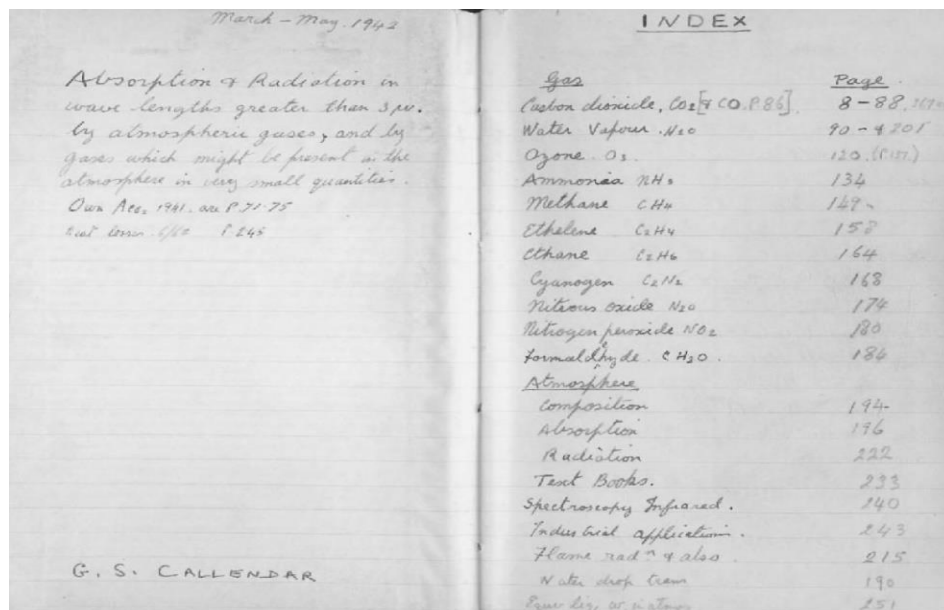 March – May. 1942
Absorption & Radiation in
wave lengths greater than 3 μ.
by atmospheric gases, and by
gases which might be present in the
atmosphere in very small quantities.
Own Acc. 1941. are P. 71-75
P. 245
G. S. CALLENDAR
INDEX
Gas Page.
Carbon dioxide, CO2 [& CO. P 86]. 8 – 88,
Water Vapour. H2O 90 – & 201
Ozone. O3. 120. (P.151.)
Ammonia NH3 134
Methane CH4 149
Ethelene C2H4 158
Ethane C2H6 164
Cyanogen C2N2 168
Nitrous oxide N2O 174
Nitrogen peroxide NO2 180
Formaldhyde. CH2O. 184
Atmosphere
Composition 194
Absorption 196
Radiation 222
Text Books. 233
Spectroscopy Infrared. 240
Industrial application. 243
Flame radn & also 215
Water drop trans 190
251